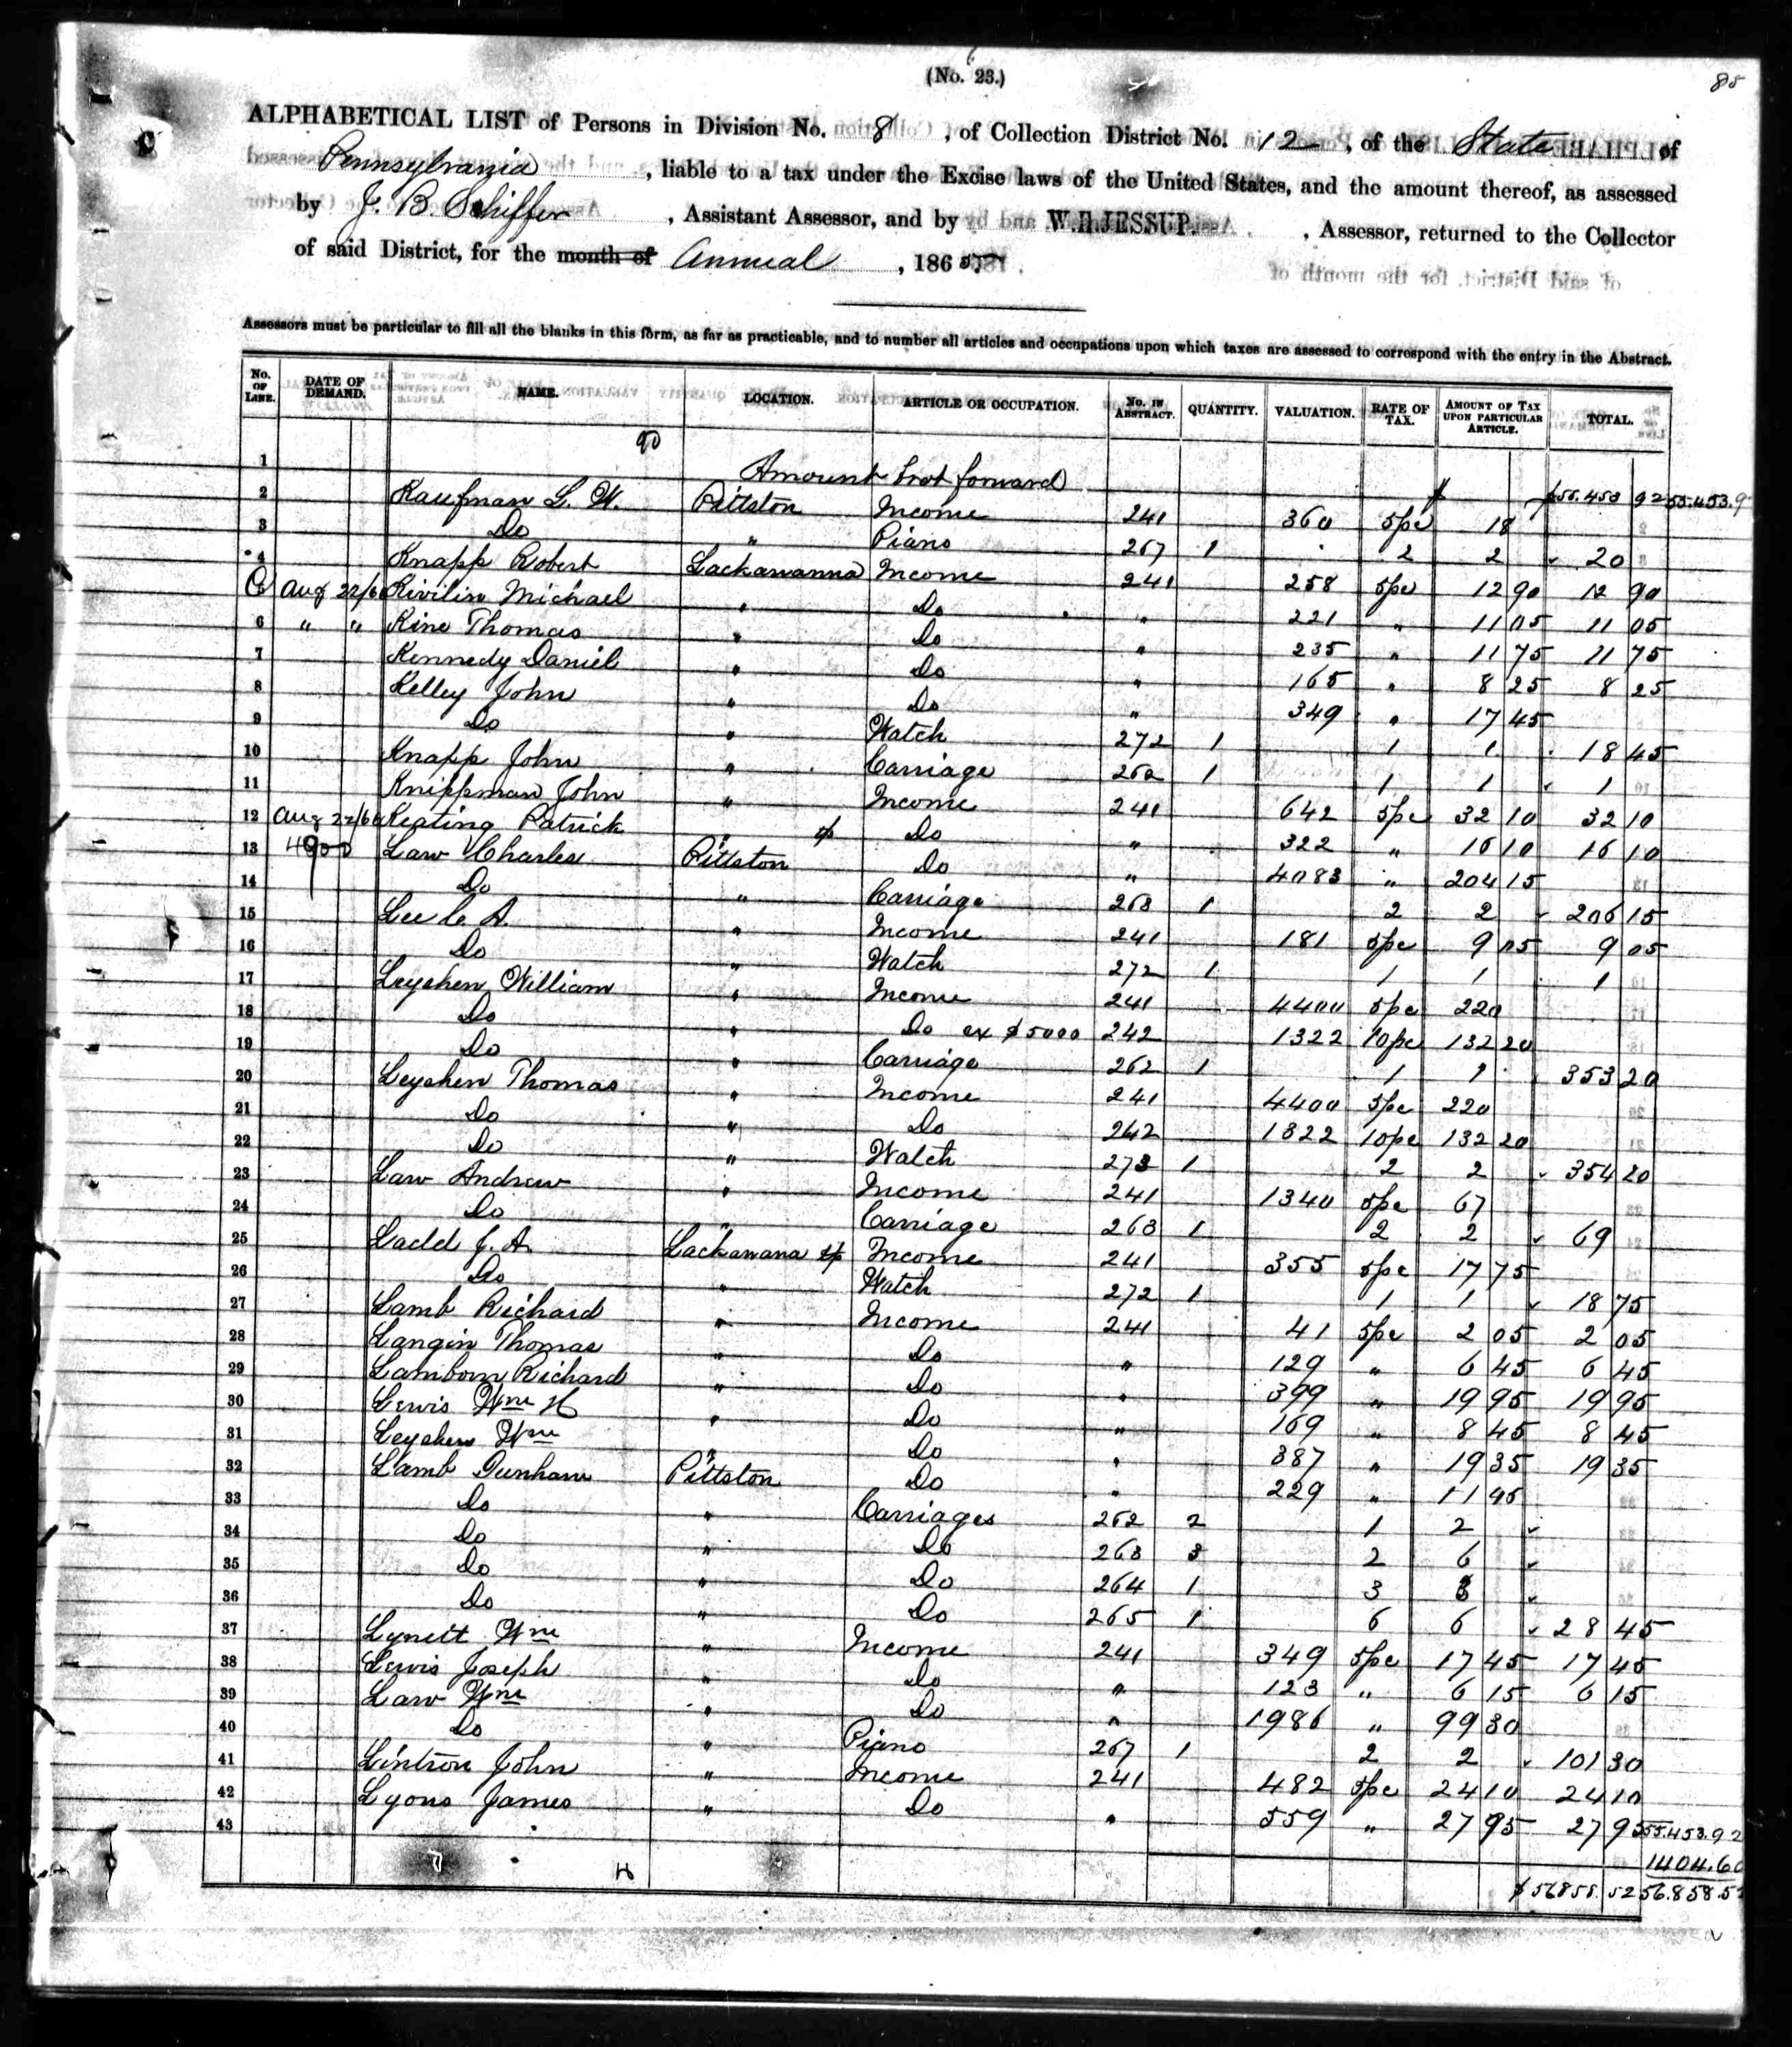 (No. 23.)
85
ALPHABETICAL LIST of Persons in Division No. 8, of Collection District No. 12, of the State of
Pennsylvania, liable to a tax under the Excise laws of the United States, and the amount thereof, as assessed
by J. B. Schiffer, Assistant Assessor, and by W. H. JESSUP., Assessor, returned to the Collector
of said District, for the month of Annual, 1865
Assessors must be particular to fill all the blanks in this form, as far as practicable, and to number all articles and occupations upon which taxes are assessed to correspond with the entry in the Abstract.
No. OF LINE. DATE OF DEMAND. NAME. LOCATION. ARTICLE OR OCCUPATION. No. IN ABSTRACT. QUANTITY. VALUATION. RATE OF TAX. AMOUNT OF TAX UPON PARTICULAR ARTICLE. TOTAL.
90
1 Amount brot forward $ $55.453 92 55.453.9
2 Kaufman L. W. Pittston Income 241 360 5pc 18
3 Do " Piano 267 1 2 2 20
4 Knapp Robert Lackawanna Income 241 258 5pc 12 90 12 90
Aug 22/6 Kivilin Michael " Do " 221 " 11 05 11 05
6 " " Kine Thomas " Do " 235 " 11 75 11 75
7 Kennedy Daniel " Do " 165 " 8 25 8 25
8 Kelley John " Do " 349 " 17 45
9 Do " Watch 272 1 1 1 18 45
10 Knapp John " Carriage 262 1 1 1 1
11 Knippman John " Income 241 642 5pc 32 10 32 10
12 Aug 22/6 Keating Patrick " Do " 322 " 16 10 16 10
13 Law Charles Pittston Do " 4083 " 204 15
14 Do " Carriage 263 1 2 2 206 15
15 Lee C. A. " Income 241 181 5pc 9 05 9 05
16 Do " Watch 272 1 1 1 1
17 Leyshen William " Income 241 4400 5pc 220
18 Do " Do ex $5000 242 1322 10pc 132 20
19 Do " Carriage 262 1 1 1 353 20
20 Leyshen Thomas " Income 241 4400 5pc 220
21 Do " Do 242 1322 10pc 132 20
22 Do " Watch 273 1 2 2 354 20
23 Law Andrew " Income 241 1340 5pc 67
24 Do " Carriage 263 1 2 2 69
25 Ladd J. A. Lackawana tp Income 241 355 5pc 17 75
26 Do " Watch 272 1 1 1 18 75
27 Lamb Richard " Income 241 41 5pc 2 05 2 05
28 Langin Thomas " Do " 129 " 6 45 6 45
29 Lamborn Richard " Do " 399 " 19 95 19 95
30 Lewis Wm H " Do " 169 " 8 45 8 45
31 Leyshen Wm " Do " 387 " 19 35 19 35
32 Lamb Dunham Pittston Do " 229 " 11 45
33 Do " Carriages 262 2 1 2
34 Do " Do 263 3 2 6
35 Do " Do 264 1 3 3
36 Do " Do 265 1 6 6 28 45
37 Lynett Wm " Income 241 349 5pc 17 45 17 45
38 Lewis Joseph " Do " 123 " 6 15 6 15
39 Law Wm " Do " 1986 " 99 30
40 Do " Piano 267 1 2 2 101 30
41 Lintron John " Income 241 482 5pc 24 10 24 10
42 Lyons James " Do " 559 " 27 95 27 95 55.453.92
43 1404.60
$56858.52 56.858.5